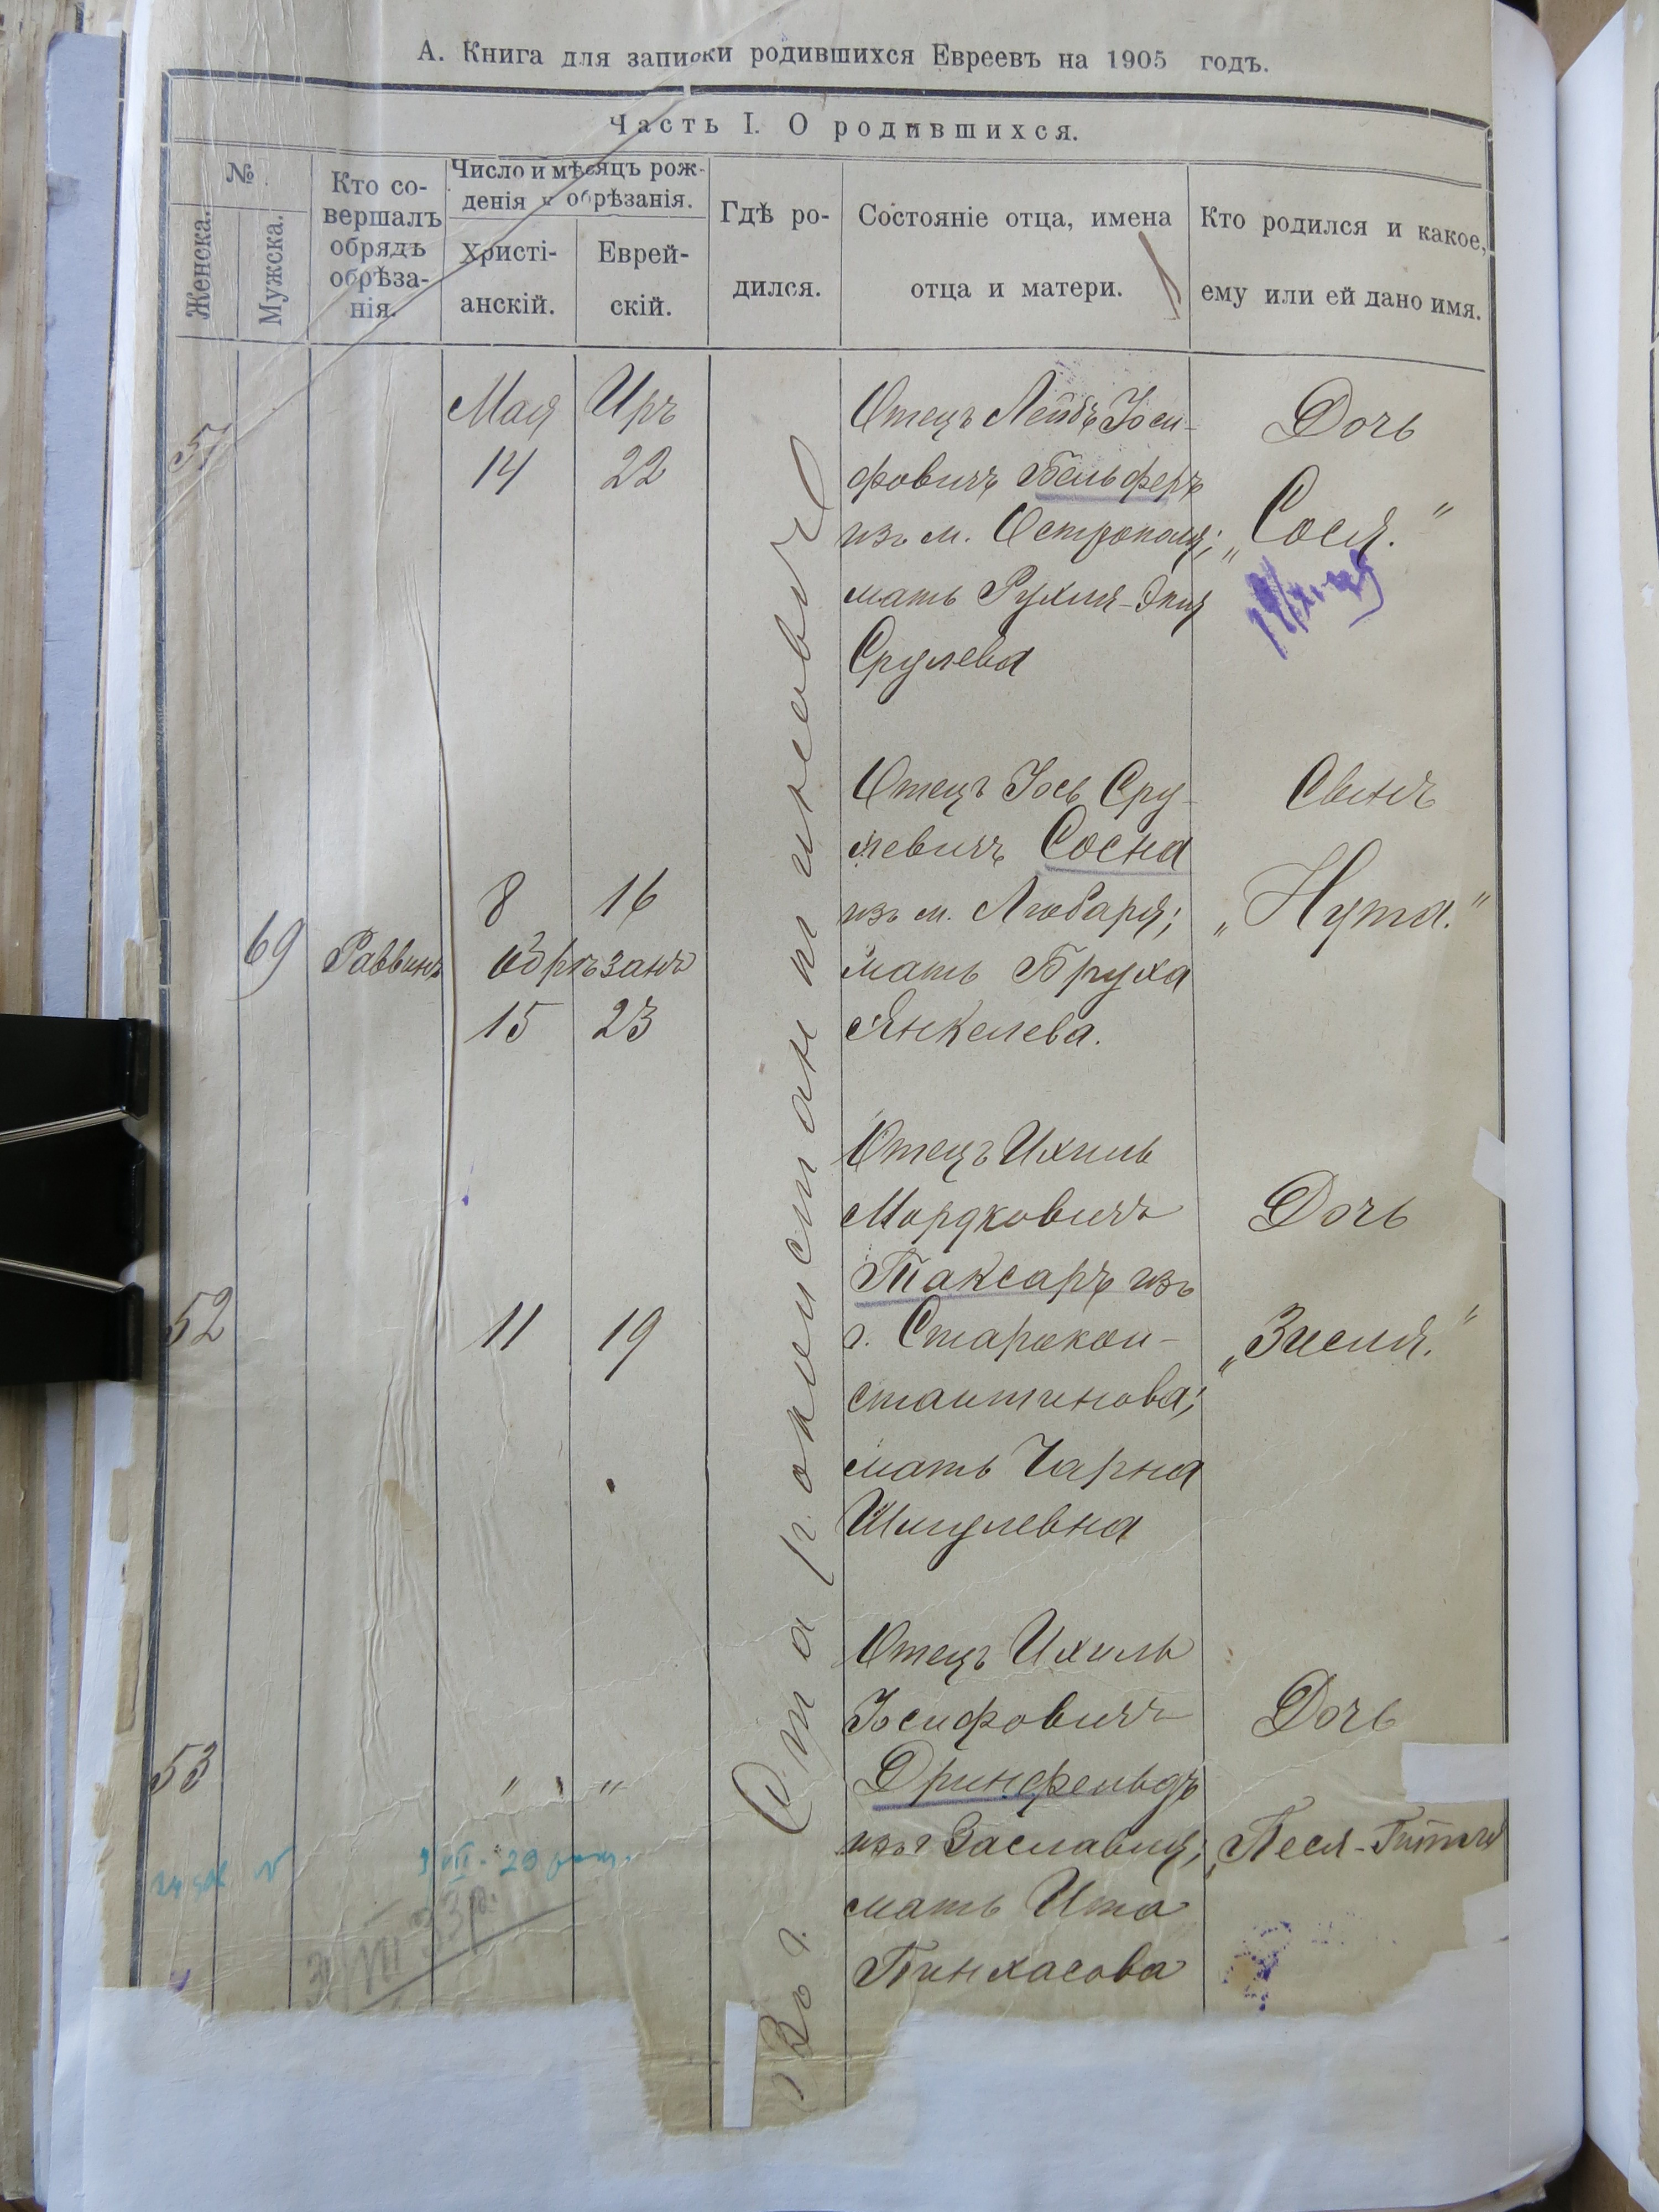 А. Книга для записки родившихся Евреевъ на 1905 годъ.
Часть I. О родившихся.
№
Женска.
Мужска.
Кто со-
вершалъ
обрядъ
обрѣза-
нія.
Число и мѣсяцъ рож-
денія и обрѣзанія.
Христі-
анскій.
Еврей-
скій.
Гдѣ ро-
дился.
Состояніе отца, имена
отца и матери.
Кто родился и какое,
ему или ей дано имя.
Во г. Староконстантиновѣ
51
Мая Иръ
14 22
Отецъ Лейбъ Іоси-
фовичъ Бельферъ
изъ м. Острополя;
мать Рухля-Эня
Срулева
Дочь
„Сося."
69 Раввинъ
8 16
обрѣзанъ
15 23
Отецъ Іось Сру-
левичъ Сосна
изъ м. Любаря;
мать Бруха
Янкелева.
Сынъ
„Нута."
52
11 19
Отецъ Ихиль
Мордковичъ
Таксаръ изъ
г. Старокон-
стантинова;
мать Чарна
Шмулевна
Дочь
„Зисля."
53
" "
Отецъ Ихиль
Іосифовичъ
Дринфельдъ
изъ г. Заславля;
мать Ита
Пинхасова
Дочь
„Песя-Гитля